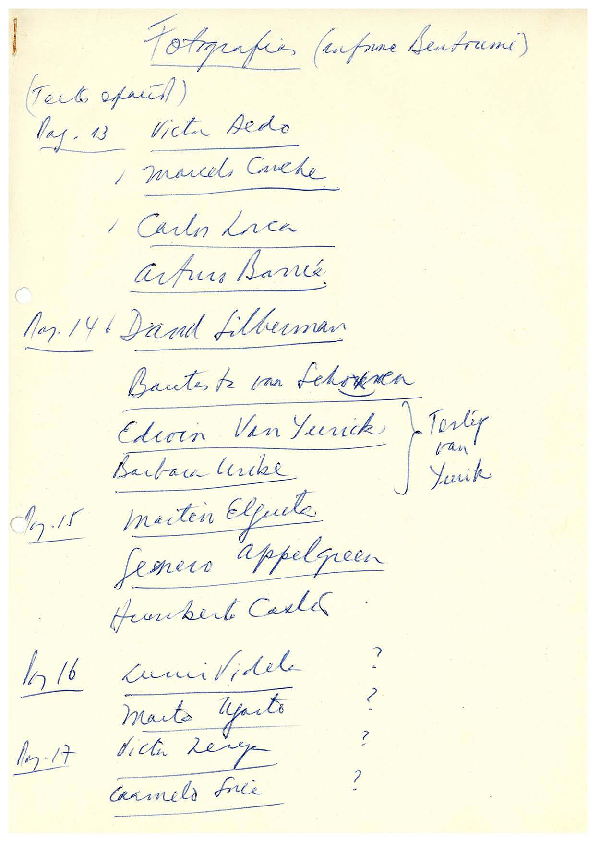 Fotografías (informe Bentoumi)
(Texto español)
Pag. 13 Victor Aedo
Marcelo Concha
Carlos Lorca
Arturo Barría
Pag. 14 David Silberman
Bautista van Schowen
Edwin Van Yurick
Barbara Uribe
Testig
van
Yurik
Pag. 15 Martin Elgueta
Genaro Appelgreen
Humberto Castro
Pag 16 Lumi Videla ?
Marta Ugarte ?
Pag. 17 Victor Zerega ?
Carmelo Soria ?